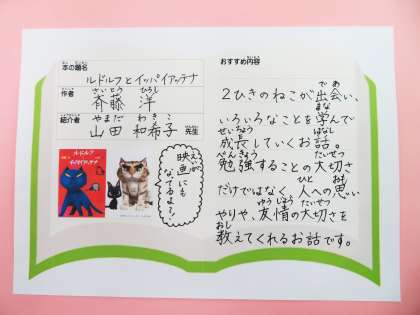 本の題名
ルドルフとイッパイアッテナ
さいとう ひろし
作者
斉藤 洋
やまだ わきこ
紹介者
山田 和希子 先生
ルドルフ
イッパイアッテナ
映画にも
なってるよ!
おすすめ内容
であ
2ひきのねこが出会い、
まな
いろいろなことを学んで
せいちょう はなし
成長していくお話。
べんきょう たいせつ
勉強することの大切さ
ひと おも
だけではなく、人への思い
ゆうじょう たいせつ
やりや、友情の大切さを
おし
教えてくれるお話です。